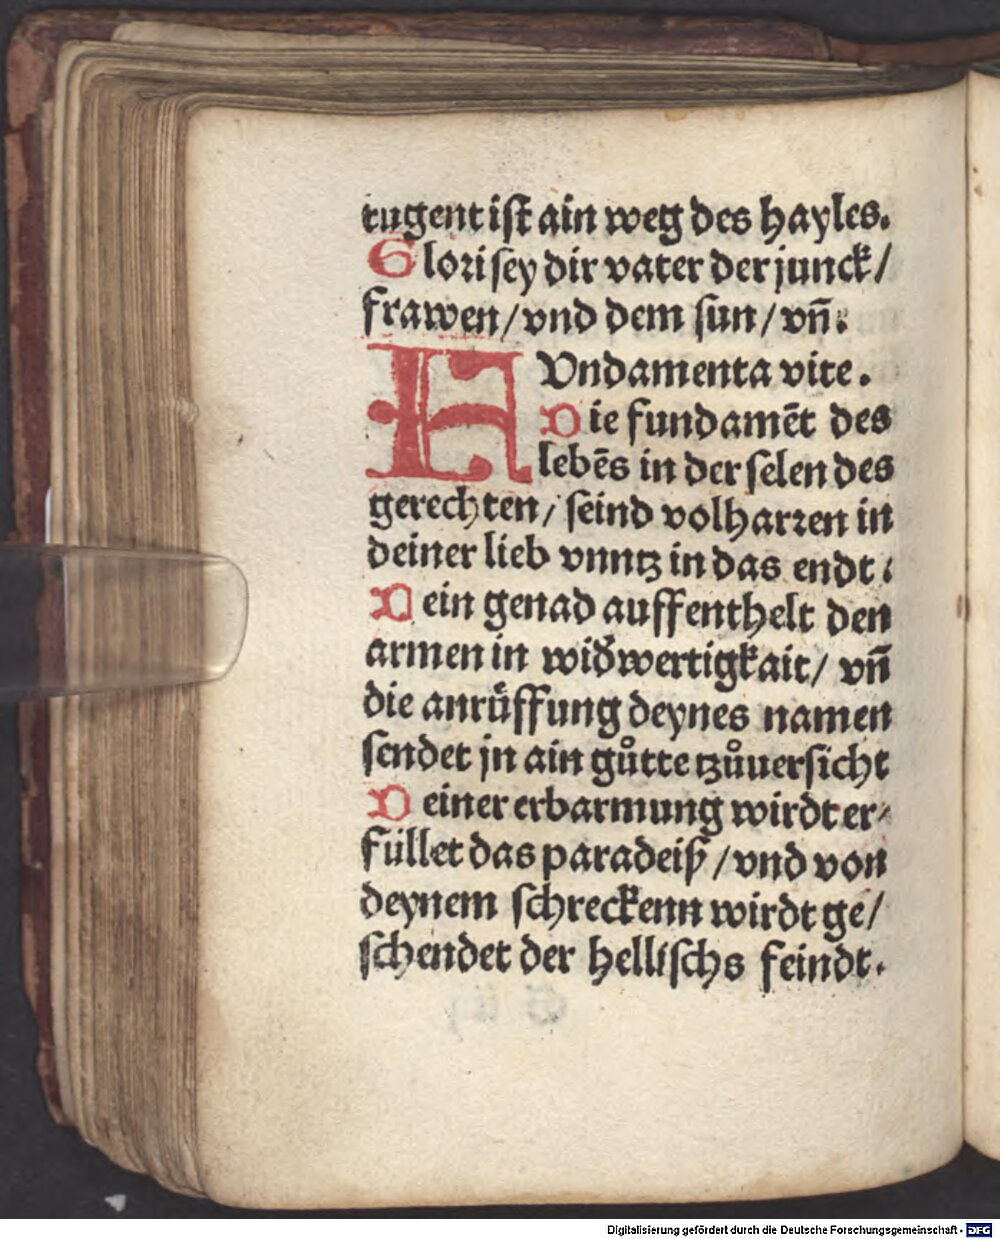 tugent iſt ain weg des hayles.
Glori ſey dir vater der junck/
frawen/vnd dem ſun/vn̄.
FVndamenta vite.
Die fundamēt des
lebēs in der ſelen des
gerechten/ ſeind volharꝛen in
deiner lieb vnntz in das endt.
Dein genad auffenthelt den
armen in wid̕wertigkait/ vn̄
die anruͤffung deynes namen
ſendet jn ain guͦtte tzuͦuerſicht
Deiner erbarmung wirdt er-
füllet das paradeiß/vnd von
deynem ſchreckenn wirdt ge/
ſchendet der helliſchs feindt.
Digitalisierung gefördert durch die Deutsche Forschungsgemeinschaft - DFG